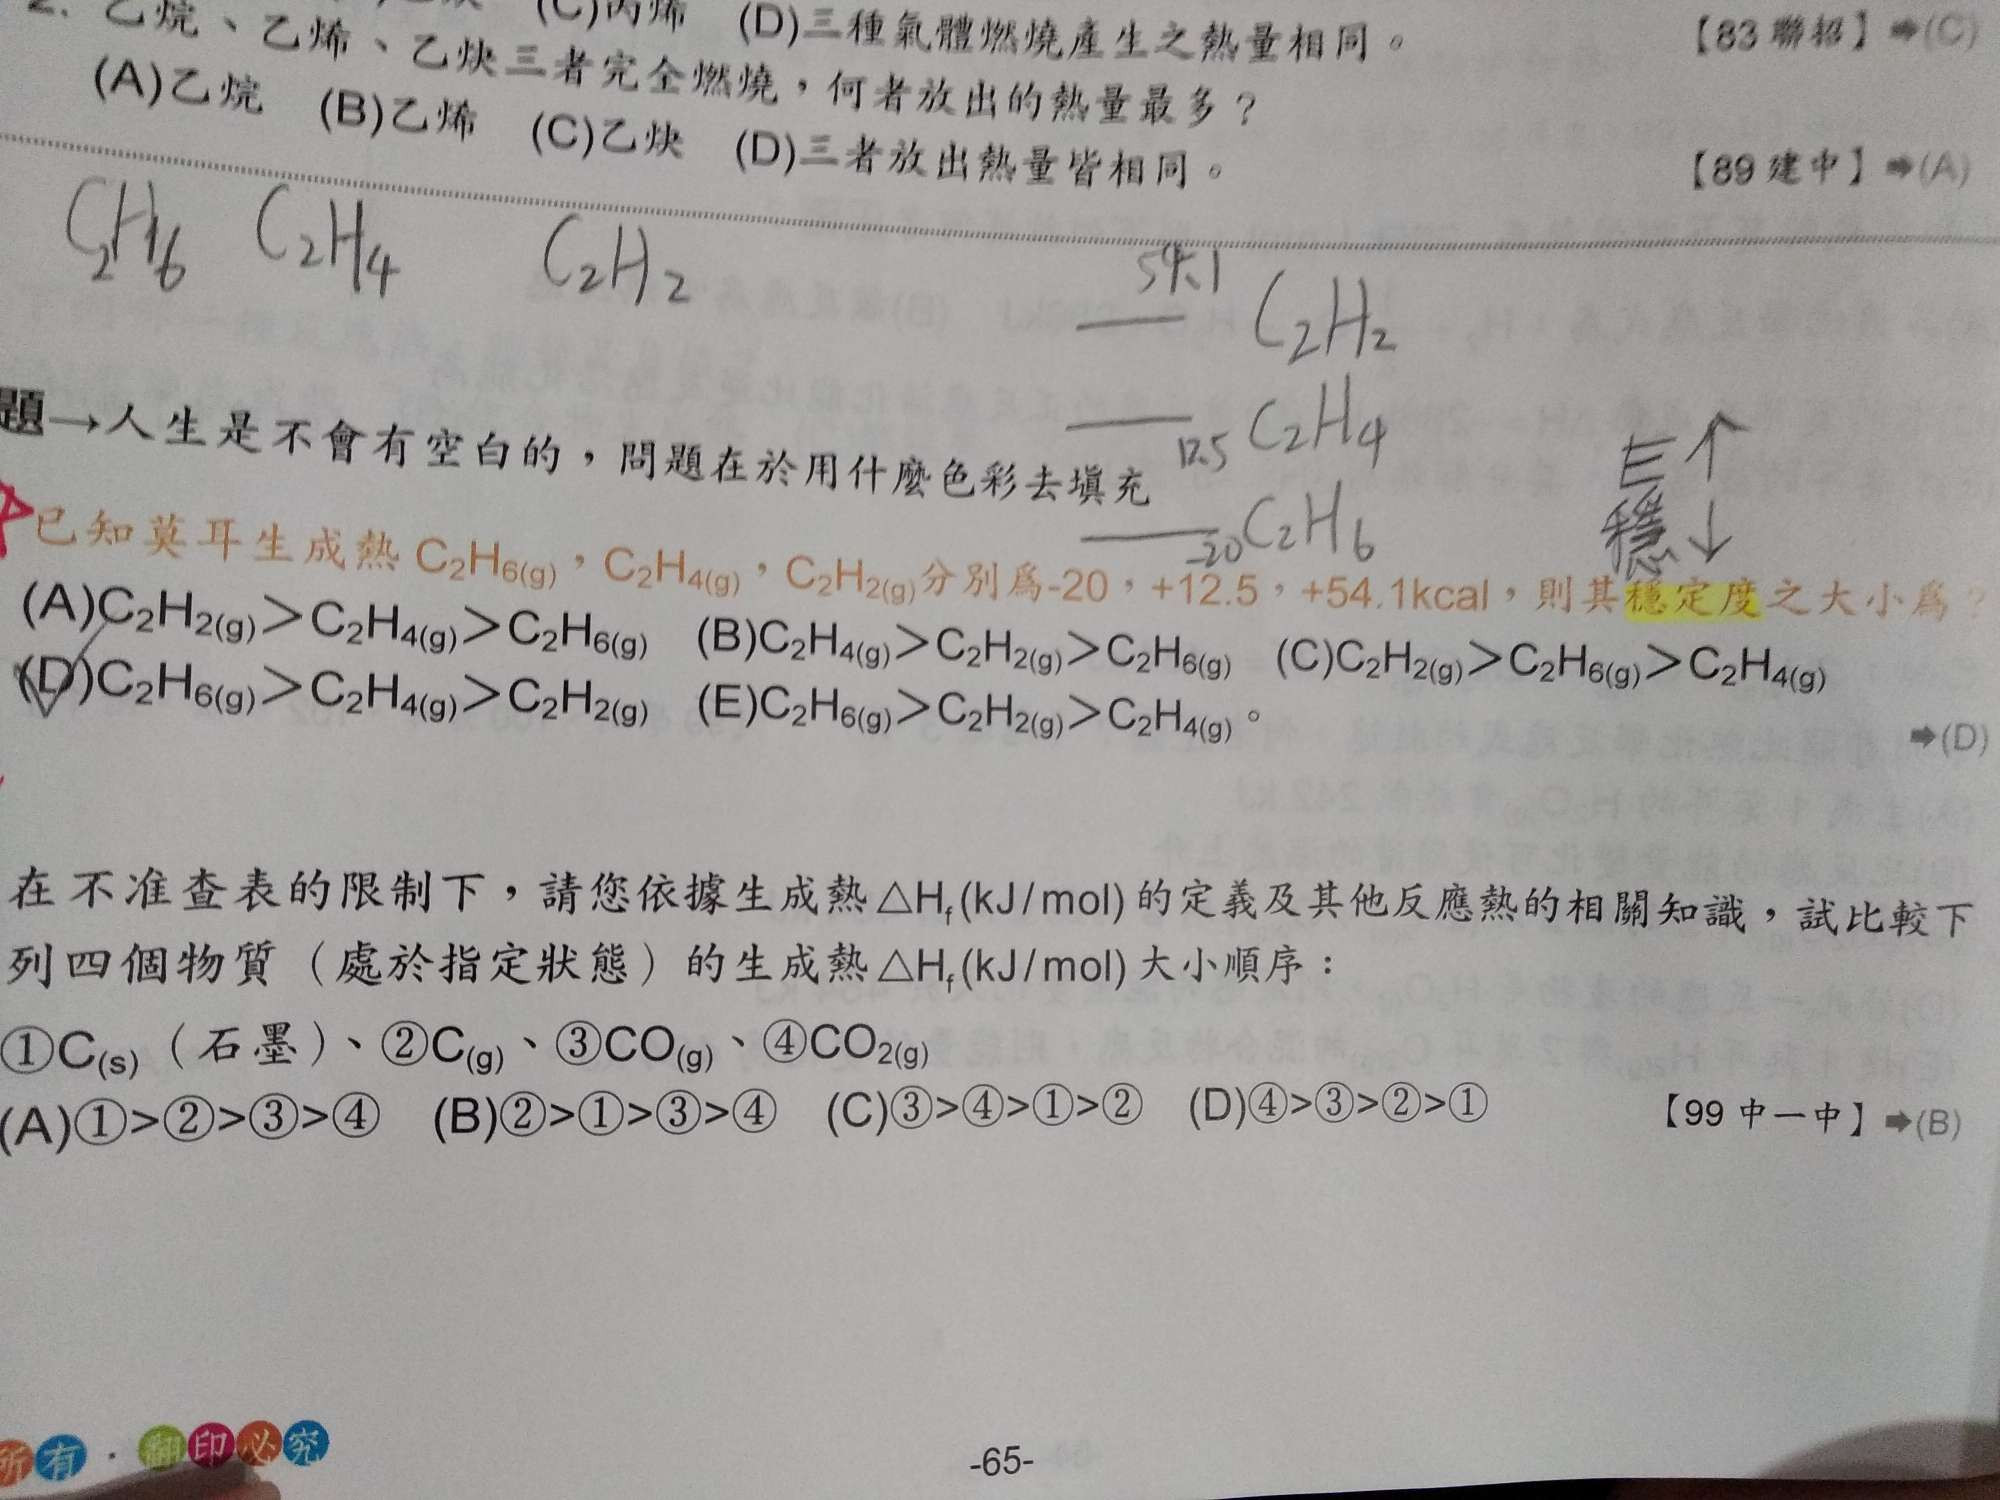 (C)丙烯 (D)三種氣體燃燒產生之熱量相同。 【83 聯招】➡(C)
2. 乙烷、乙烯、乙炔三者完全燃燒,何者放出的熱量最多?
(A)乙烷 (B)乙烯 (C)乙炔 (D)三者放出熱量皆相同。 【89 建中】➡(A)
C₂H₆ C₂H₄ C₂H₂
54.1 C₂H₂
12.5 C₂H₄
-20 C₂H₆
E↑
穩↓
題→人生是不會有空白的,問題在於用什麼色彩去填充
已知莫耳生成熱 C₂H₆(g),C₂H₄(g),C₂H₂(g)分別為-20,+12.5,+54.1kcal,則其穩定度之大小為?
(A)C₂H₂(g)>C₂H₄(g)>C₂H₆(g) (B)C₂H₄(g)>C₂H₂(g)>C₂H₆(g) (C)C₂H₂(g)>C₂H₆(g)>C₂H₄(g)
(D)C₂H₆(g)>C₂H₄(g)>C₂H₂(g) (E)C₂H₆(g)>C₂H₂(g)>C₂H₄(g)。 ➡(D)
在不准查表的限制下,請您依據生成熱△Hf(kJ/mol)的定義及其他反應熱的相關知識,試比較下
列四個物質(處於指定狀態)的生成熱△Hf(kJ/mol)大小順序:
①C(s)(石墨)、②C(g)、③CO(g)、④CO₂(g)
(A)①>②>③>④ (B)②>①>③>④ (C)③>④>①>② (D)④>③>②>① 【99 中一中】➡(B)
所有・翻印必究
-65-